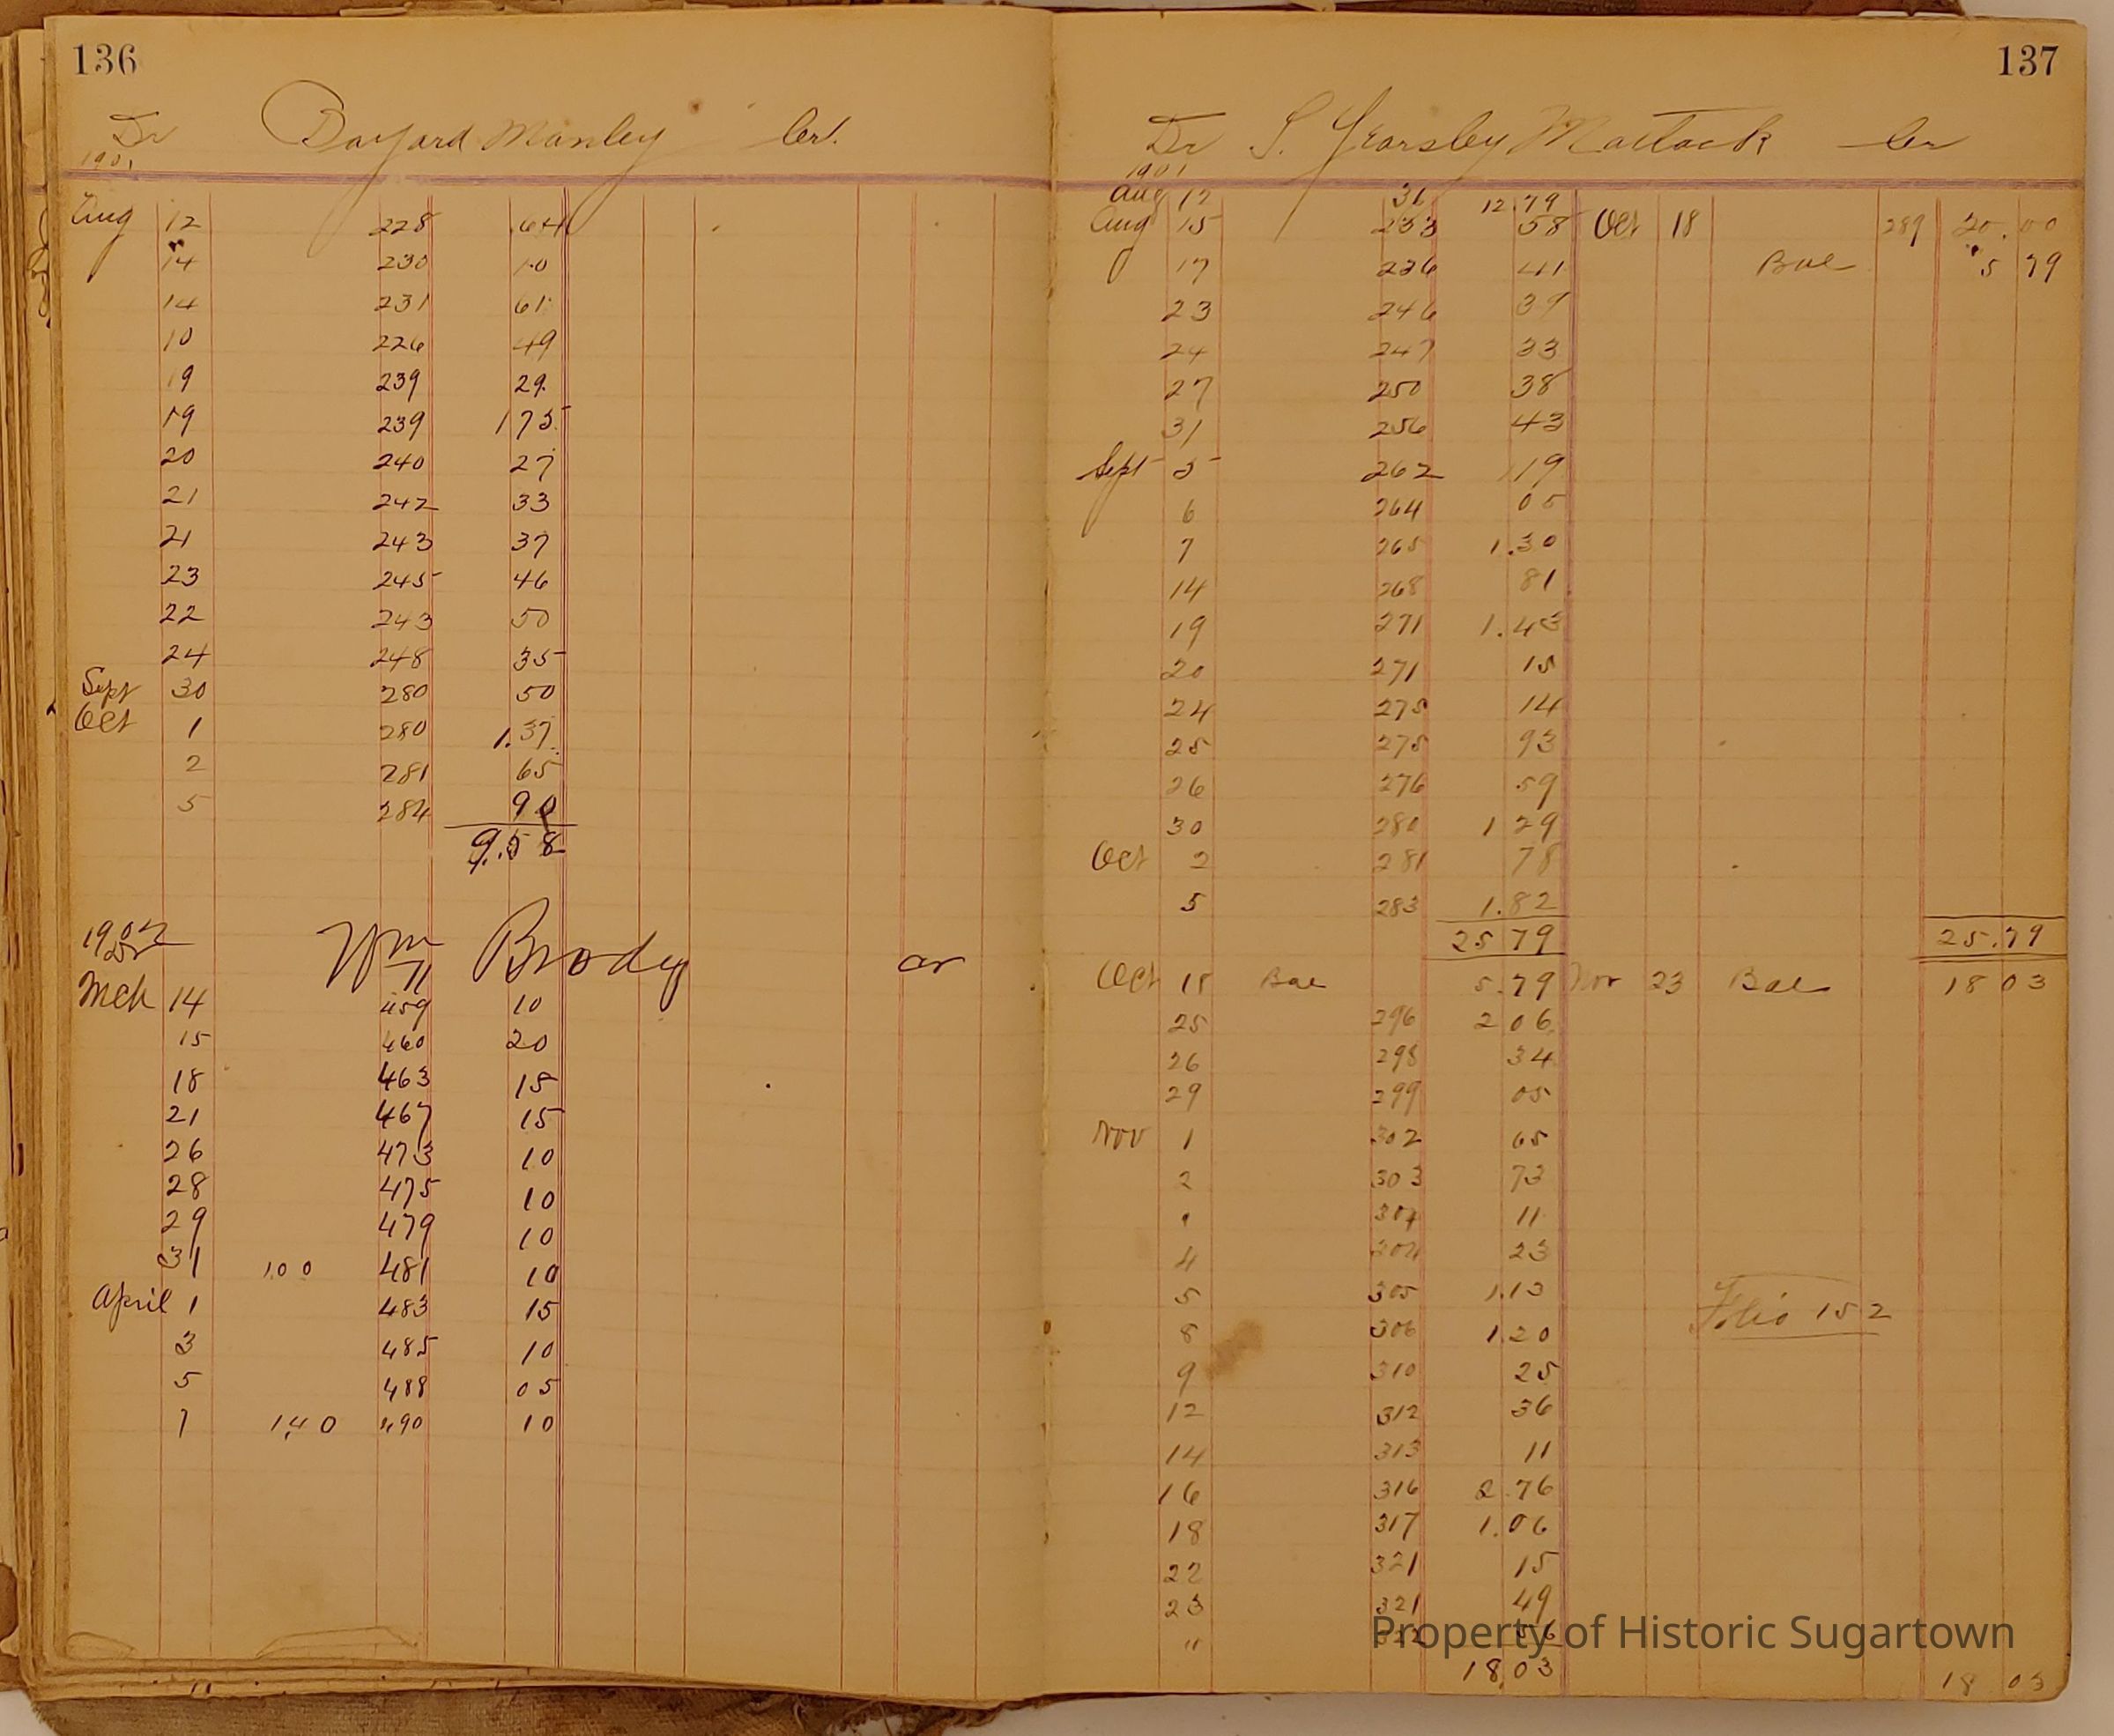 136
Dr Bayard Manley Cr.
1901
Aug 12 228 .64
14 230 10
14 231 61
10 226 49
19 239 29
19 239 1 75
20 240 27
21 242 33
21 243 37
23 245 46
22 243 50
24 248 35
Sept 30 280 50
Oct 1 280 1.37
2 281 65
5 284 90
9.58
1902
Dr Wm Brody Cr
Mch 14 459 10
15 460 20
18 463 15
21 467 15
26 473 10
28 475 10
29 479 10
31 1.00 481 10
April 1 483 15
3 485 10
5 488 05
7 1.40 490 10
137
Dr S. Yearsley Matlack Cr
1901
Aug 12 31 12.79
Aug 15 233 58 Oct 18 289 20.00
17 236 41 Bal 5 79
23 246 39
24 247 33
27 250 38
31 256 43
Sept 5 262 19
6 264 05
7 265 1.30
14 268 81
19 271 1.43
20 271 15
24 275 14
25 275 93
26 276 59
30 280 1 29
Oct 2 281 78
5 283 1.82
25 79 25.79
Oct 18 Bal 5.79 Nov 23 Bal 18 03
25 296 2 06
26 298 34
29 299 05
Nov 1 302 65
2 303 73
304 11
4 304 23
5 305 1.13 Folio 152
8 306 1.20
9 310 25
12 312 36
14 313 11
16 316 2.76
18 317 1.06
22 321 15
23 321 49
" 322 56
18.03 18 03
Property of Historic Sugartown